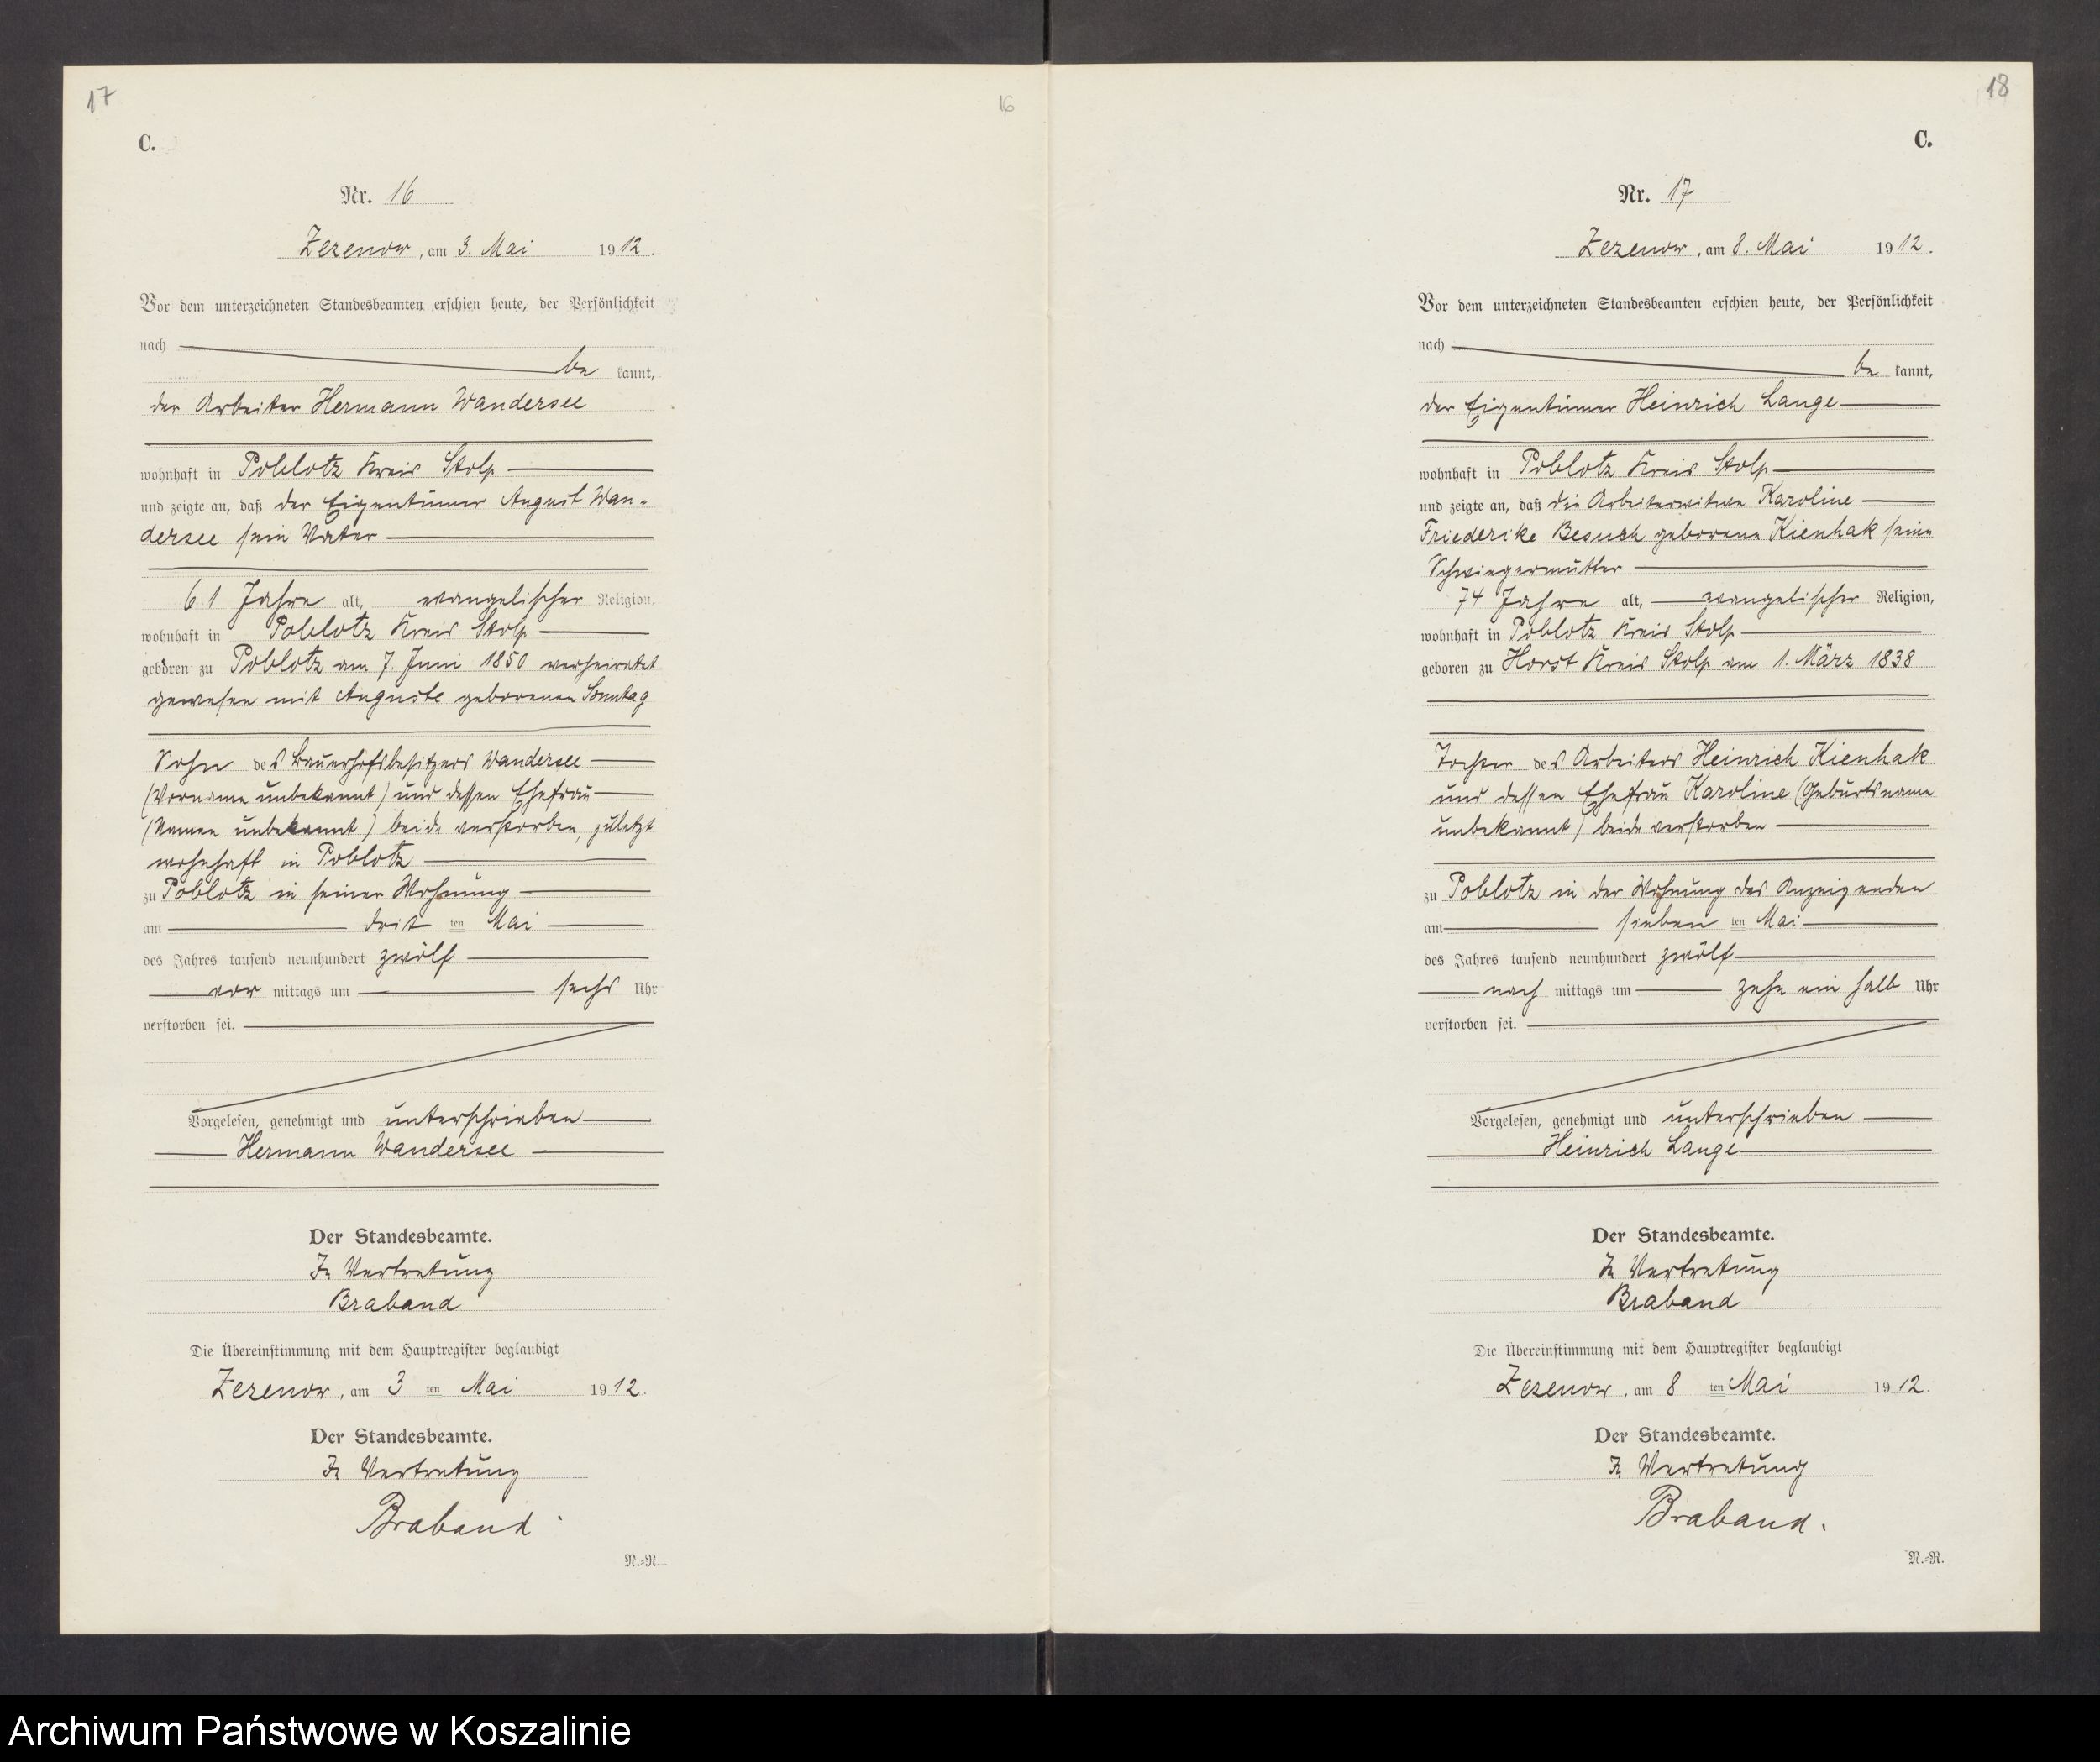 17
C.
Nr. 16
Zezenow, am 3. Mai 1912.
Vor dem unterzeichneten Standesbeamten erschien heute, der Persönlichkeit
nach
be kannt,
der Arbeiter Hermann Wandersee
wohnhaft in Poblotz Kreis Stolp
und zeigte an, daß der Eigentümer August Wan-
dersee sein Vater
61 Jahre alt, evangelischer Religion,
wohnhaft in Poblotz Kreis Stolp
geboren zu Poblotz am 7. Juni 1850 verheiratet
gewesen mit Auguste geborenen Sonntag
Sohn des Bauerhofsbesitzers Wandersee
(Vorname unbekannt) und dessen Ehefrau
(Namen unbekannt) beide verstorben, zuletzt
wohnhaft in Poblotz
zu Poblotz in seiner Wohnung
am drit ten Mai
des Jahres tausend neunhundert zwölf
vor mittags um sechs Uhr
verstorben sei.
Vorgelesen, genehmigt und unterschrieben
Hermann Wandersee
Der Standesbeamte.
In Vertretung
Braband
Die Übereinstimmung mit dem Hauptregister beglaubigt
Zezenow, am 3 ten Mai 1912.
Der Standesbeamte.
In Vertretung
Braband
N.-R.
16
18
C.
Nr. 17
Zezenow, am 8. Mai 1912.
Vor dem unterzeichneten Standesbeamten erschien heute, der Persönlichkeit
nach
be kannt,
der Eigentümer Heinrich Lange
wohnhaft in Poblotz Kreis Stolp
und zeigte an, daß die Arbeiterwitwe Karoline
Friederike Besuch geborene Kienhak seine
Schwiegermutter
74 Jahre alt, evangelischer Religion,
wohnhaft in Poblotz Kreis Stolp
geboren zu Horst Kreis Stolp am 1. März 1838
Tochter des Arbeiters Heinrich Kienhak
und dessen Ehefrau Karoline (Geburtsname
unbekannt) beide verstorben
zu Poblotz in der Wohnung des Anzeigenden
am sieben ten Mai
des Jahres tausend neunhundert zwölf
nach mittags um zehn ein halb Uhr
verstorben sei.
Vorgelesen, genehmigt und unterschrieben
Heinrich Lange
Der Standesbeamte.
In Vertretung
Braband
Die Übereinstimmung mit dem Hauptregister beglaubigt
Zezenow, am 8 ten Mai 1912.
Der Standesbeamte.
In Vertretung
Braband.
N.-R.
Archiwum Państwowe w Koszalinie